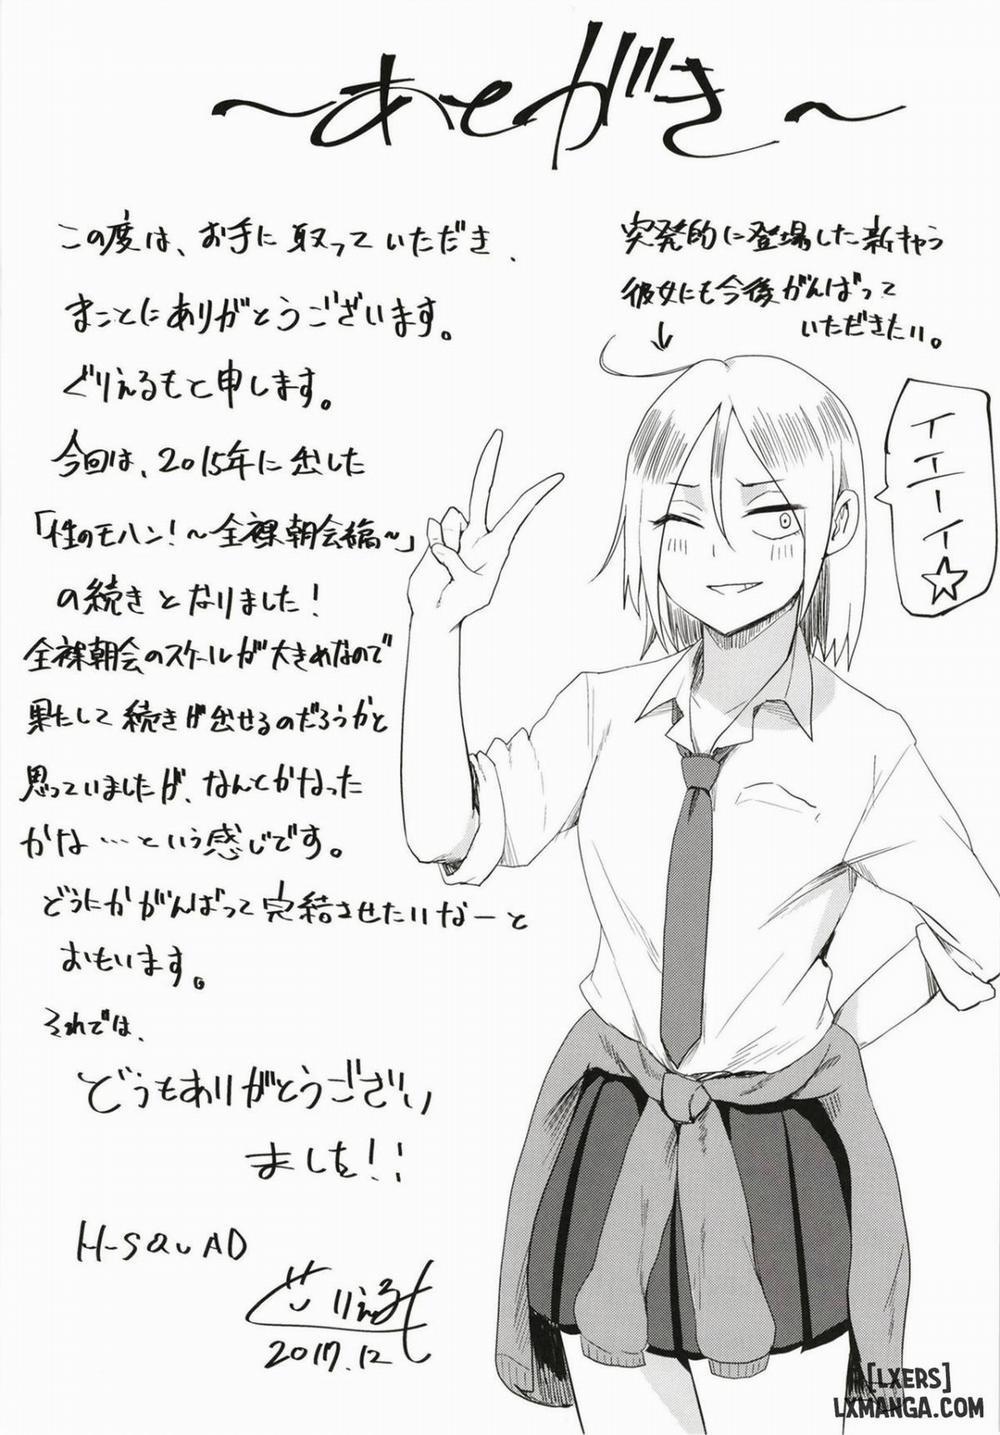 ～あとがき～
この度は、お手に取っていただき、
まことにありがとうございます。
ぐりえるもと申します。
今回は、2015年に出した
「性のモハン!～全裸朝会編～」
の続きとなりました!
全裸朝会のスケールが大きめなので
果たして続きが出せるのだろうかと
思っていましたが、なんとかなった
かな…という感じです。
どうにかがんばって完結させたいなーと
おもいます。
それでは、
どうもありがとうござい
ました!!
H-SQUAD
ぐりえるも
2017.12
突発的に登場した新キャラ
彼女にも今後がんばって
いただきたい。
イエーイ☆
[LXERS]
LXMANGA.COM